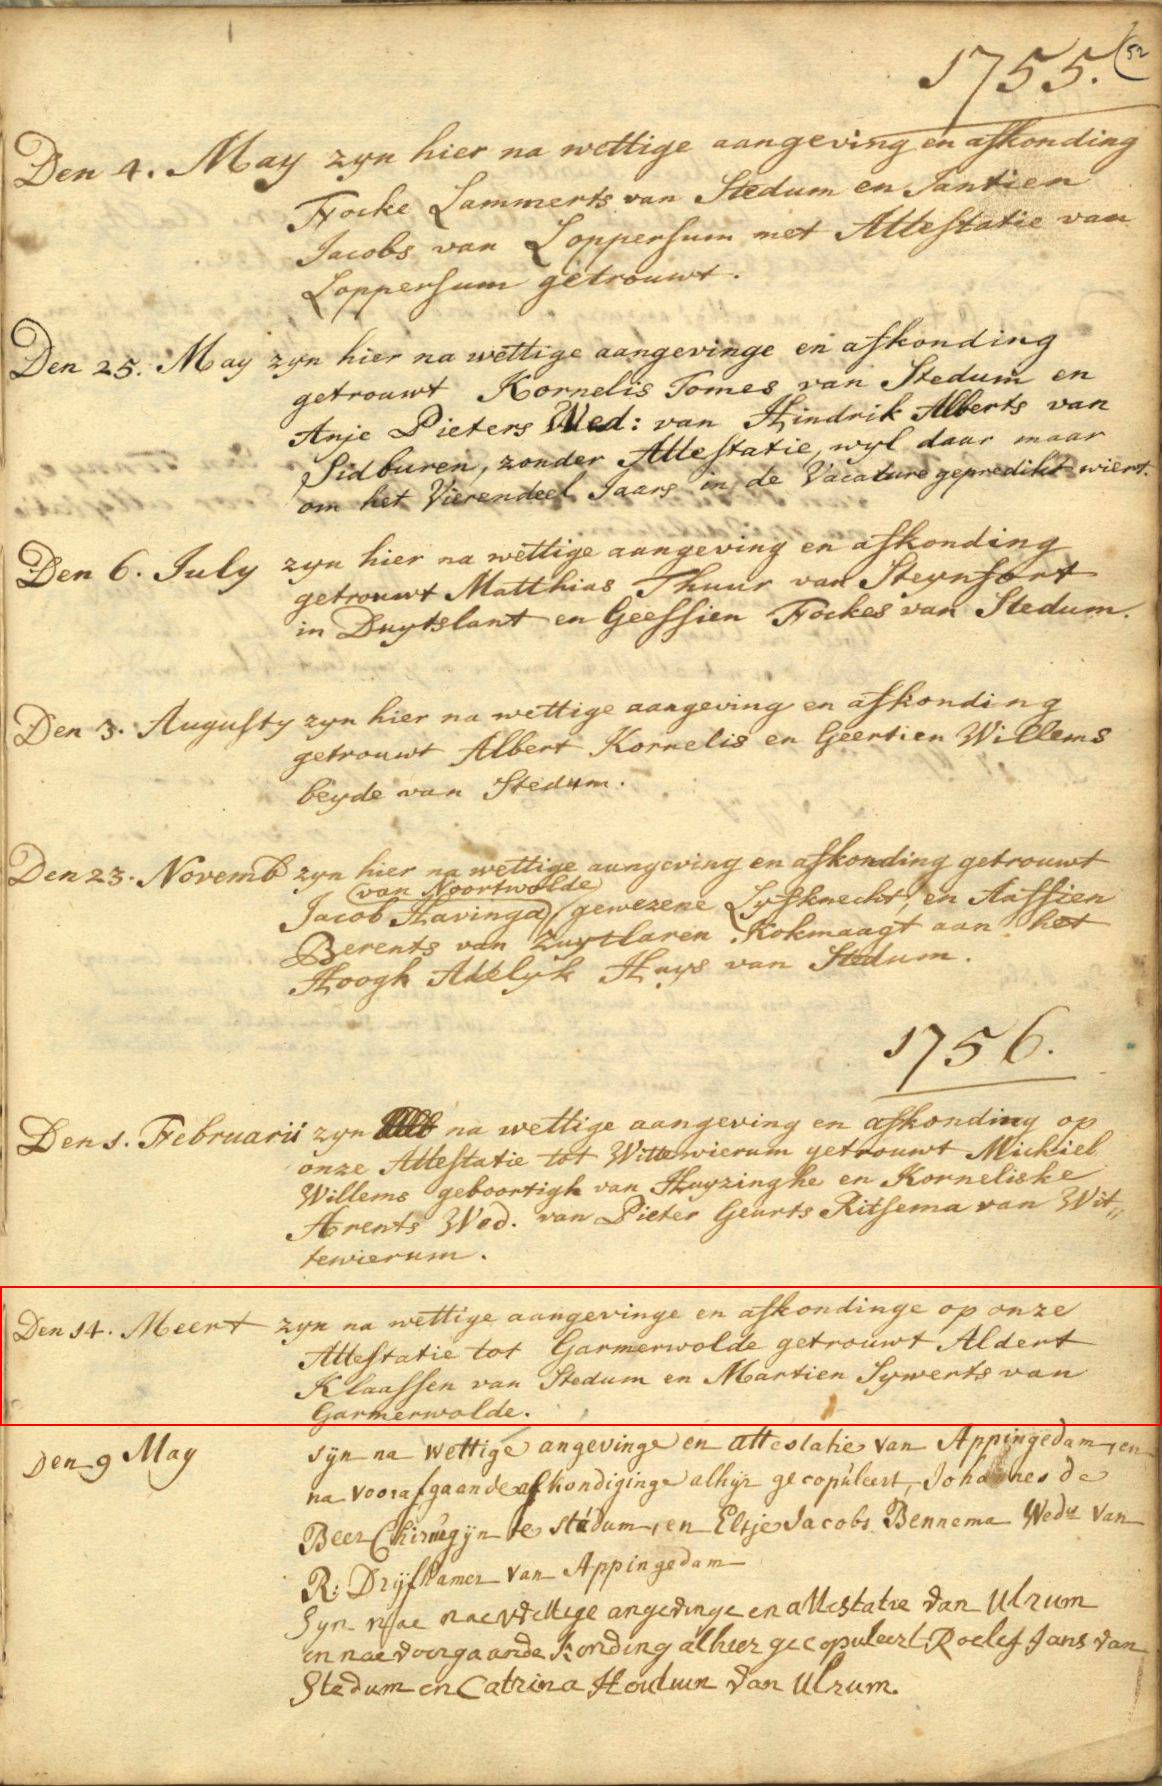 1755.
52
Den 4. May zyn hier na wettige aangeving en afkonding
Focke Lammerts van Stedum en Jantien
Jacobs van Loppersum met Attestatie van
Loppersum getrouwt.
Den 25. May zyn hier na wettige aangevinge en afkonding
getrouwt Kornelis Tomes van Stedum en
Anje Pieters Wed: van Hindrik Alberts van
Sidburen, zonder Attestatie, wyl daar maar
om het Vierendeel Jaars in de Vacature gepredikt wiert.
Den 6. July zyn hier na wettige aangeving en afkonding
getrouwt Matthias Thuur van Steynfort
in Duytslant en Geessien Fockes van Stedum.
Den 3. Augusty zyn hier na wettige aangeving en afkonding
getrouwt Albert Kornelis en Geertien Willems
beyde van Stedum.
Den 23. Novemb zyn hier na wettige aangeving en afkonding getrouwt
van Noortwolde
Jacob Havinga, gewezene Lyfknecht, en Aassien
Berents van Zuytlaren Kokmaagt aan het
Hoogh Adelyk Huys van Stedum.
1756.
Den 1. Februarii zyn na wettige aangeving en afkonding op
onze Attestatie tot Wittewierum getrouwt Michiel
Willems geboortigh van Huyzinghe en Korneliske
Arents Wed. van Pieter Geurts Ritsema van Wit„
tewierum.
Den 14. Meert zyn na wettige aangevinge en afkondinge op onze
Attestatie tot Garmerwolde getrouwt Aldert
Klaassen van Stedum en Martien Sywerts van
Garmerwolde.
Den 9 May sÿn na wettige angevinge en attestatie van Appingedam, en
na voorafgaande afkondiginge alhijr gecopuleert, Johannes de
Beer Chirurgijn te Stedum, en Eltje Jacobs Bennema Wedw van
R: Drijfhamer van Appingedam
Syn nae wettege angevinge en attestatie van Ulrum
en nae voorgaande konding alhier gecopuleert Roelef Jans van
Stedum en Catrina Houtuin van Ulrum.